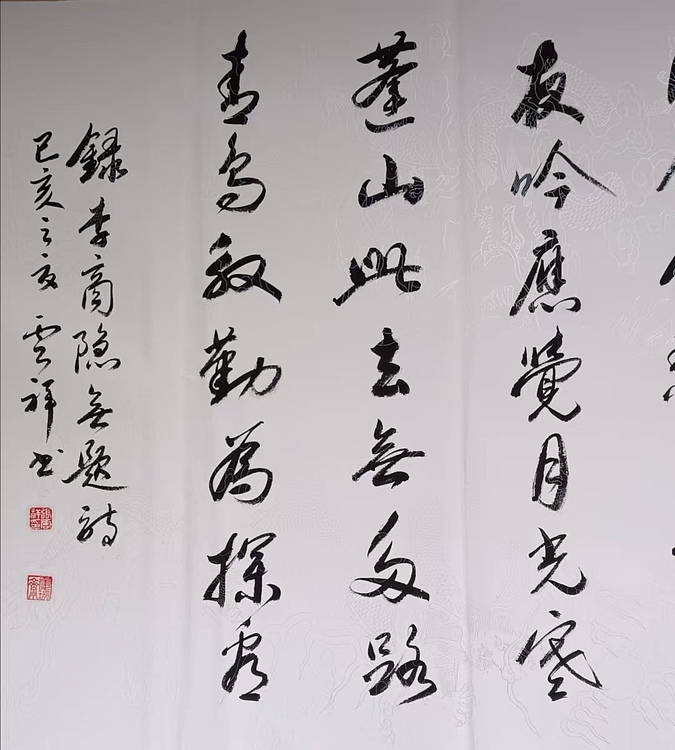 夜吟應覺月光寒
蓬山此去無多路
青鳥殷勤為探看
録李商隐無題詩
己亥之夏雲祥书